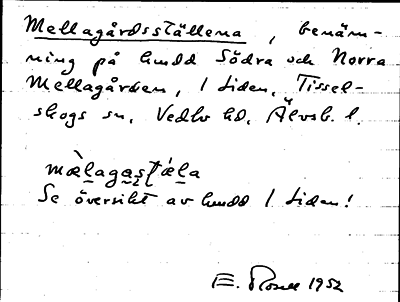 Mellagårdsställena, benäm-
ning på hmdd Södra och Norra
Mellagården, 1 Liden, Tissel-
skogs sn, Vedbo hd, Älvsb. l.
mæ̀lagastǽla
Se översikt av hmdd 1 Liden!
E. Rosell 1952